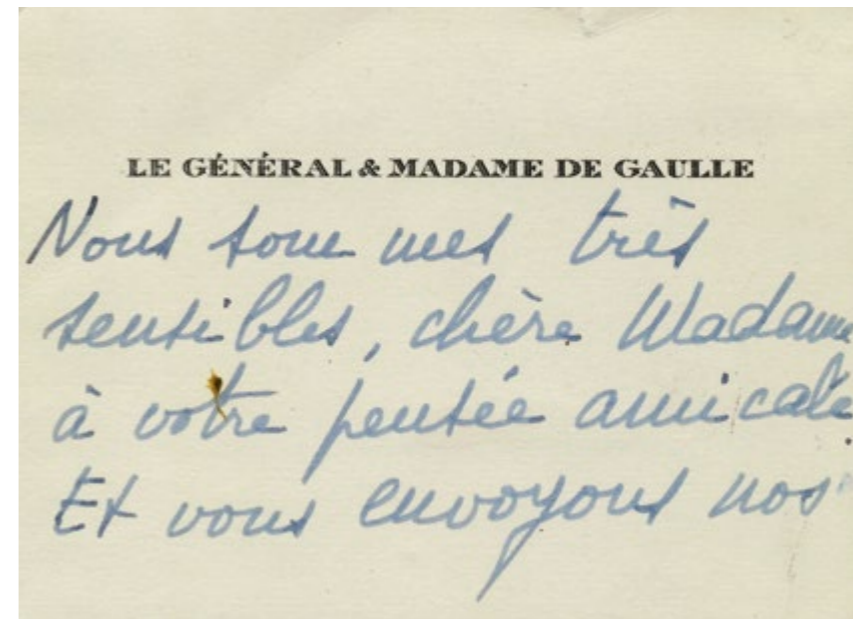 LE GÉNÉRAL & MADAME DE GAULLE
Nous sommes très
sensibles, chère Madame
à votre pensée amicale
Et vous envoyons nos